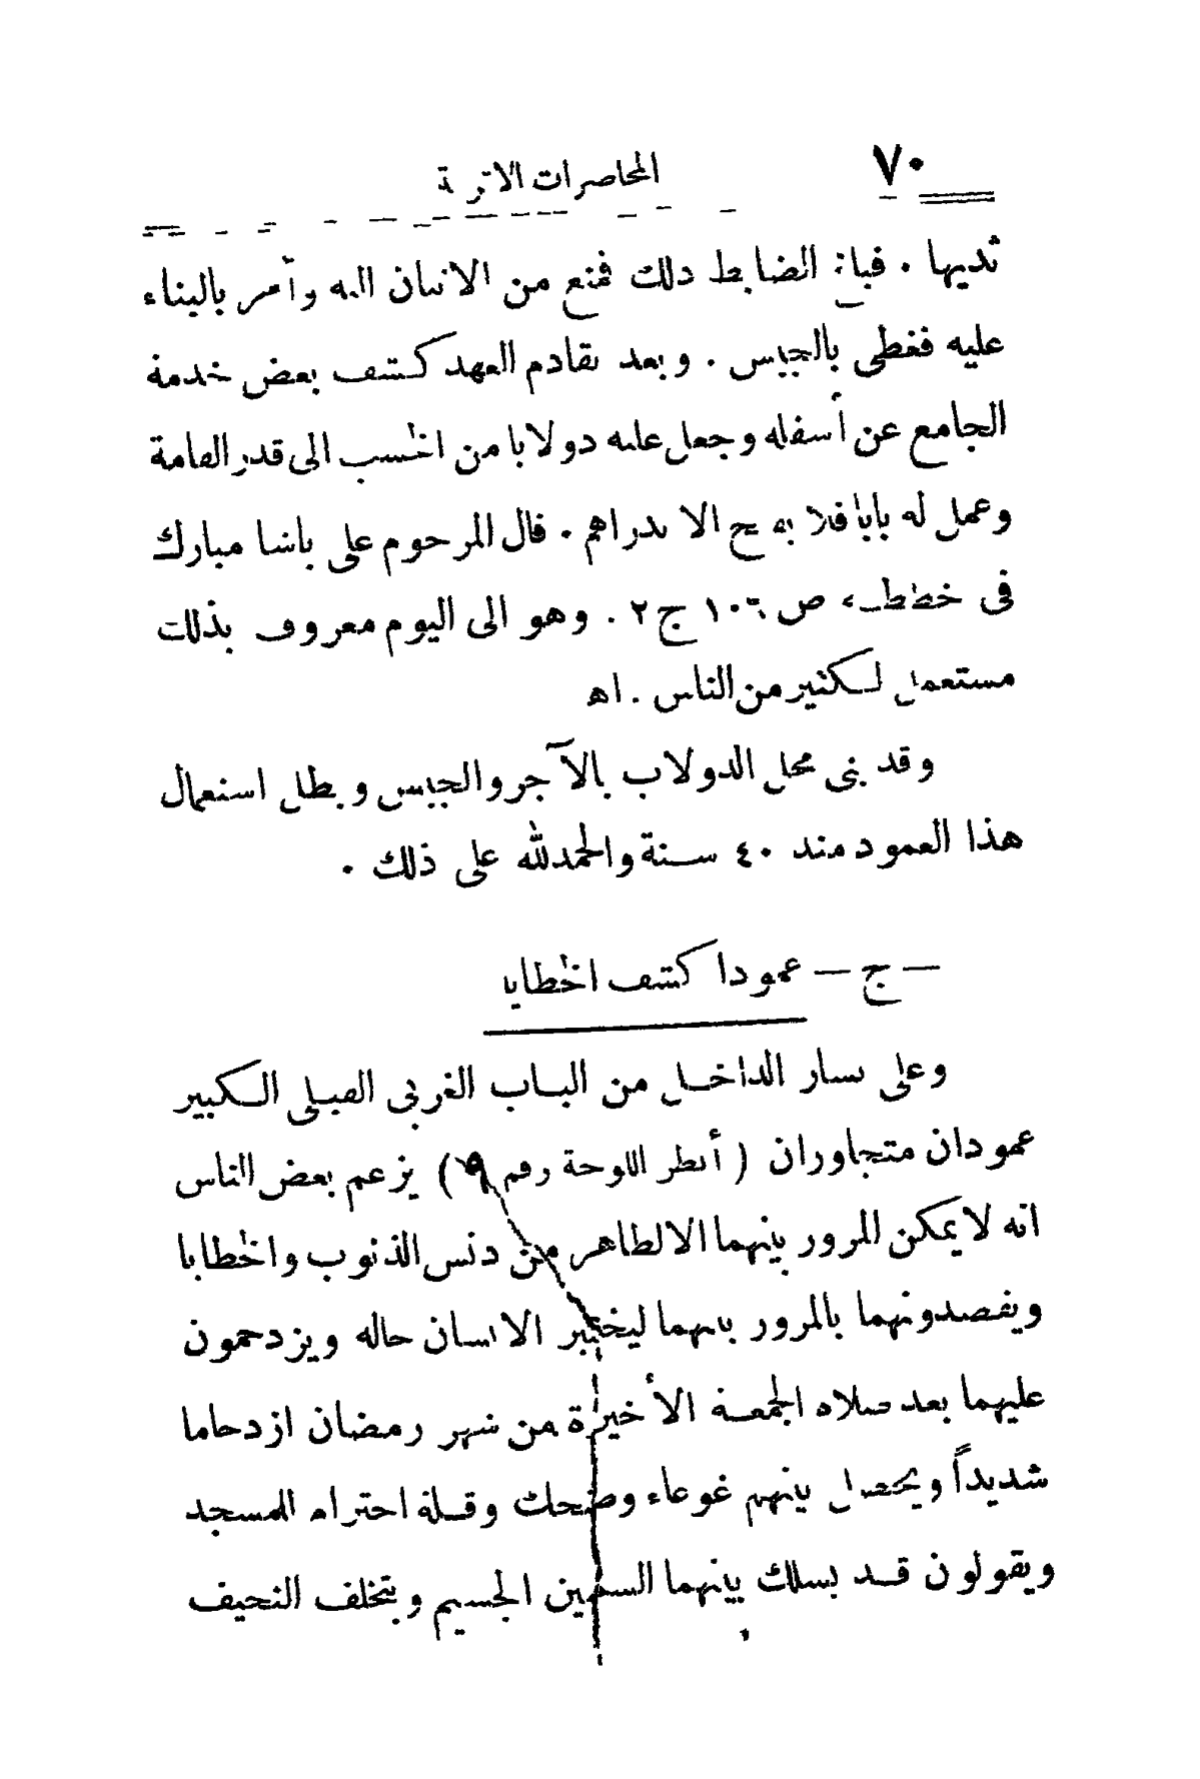 ٧٠
المحاضرات الاثرية
ثديها . فبلغ الضابط ذلك فمنع من الاتيان اليه وأمر بالبناء
عليه فغطى بالجبس . وبعد تقادم العهد كشف بعض خدمة
الجامع عن أسفله وجعل عليه دولابا من الخشب الى قدر القامة
وعمل له بابا فلا يفتح الا بدراهم . قال المرحوم على باشا مبارك
فى خططه ص ١٠٦ ج ٢ . وهو الى اليوم معروف بذلك
مستعمل لكثير من الناس . اه
وقد بنى محل الدولاب بالآجر والجبس وبطل استعمال
هذا العمود منذ ٤٠ سنة والحمد لله على ذلك .
— ج — عمودا كشف الخطايا
وعلى يسار الداخل من الباب الغربى القبلى الكبير
عمودان متجاوران ( أنظر اللوحة رقم ) يزعم بعض الناس
انه لا يمكن المرور بينهما الا لطاهر من دنس الذنوب والخطايا
ويقصدونهما بالمرور بينهما ليختبر الانسان حاله ويزدحمون
عليهما بعد صلاة الجمعة الأخيرة من شهر رمضان ازدحاما
شديداً ويحصل بينهم غوغاء وضحك وقلة احترام للمسجد
ويقولون قد يسلك بينهما السمين الجسيم ويتخلف النحيف